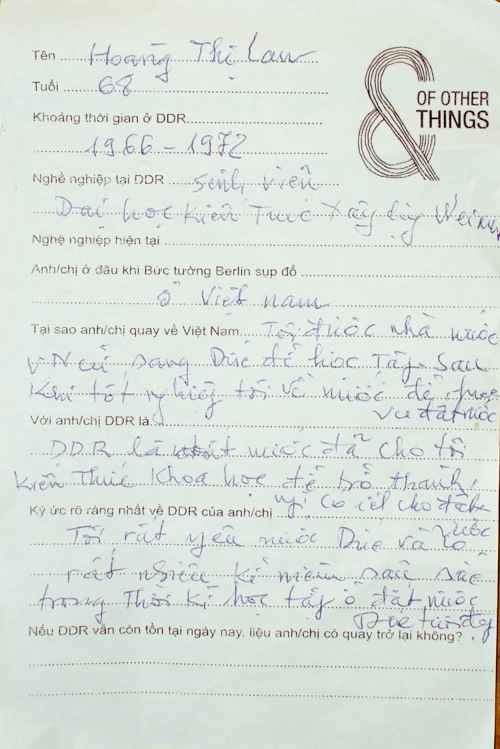 Tên Hoàng Thị Lan
Tuổi 68
&
OF OTHER
THINGS
Khoảng thời gian ở DDR
1966 - 1972
Nghề nghiệp tại DDR sinh viên
Đại học Kiến Trúc Xây dựng Weimar
Nghệ nghiệp hiện tại
Anh/chị ở đâu khi Bức tường Berlin sụp đổ
ở Việt nam
Tại sao anh/chị quay về Việt Nam Tôi được nhà nước
VN cử sang Đức để học Tập. Sau
Khi tốt nghiệp tôi về nước để phục
vụ đất nước
Với anh/chị DDR là
DDR là nước đã cho tôi
Kiến Thức Khoa học để trở thành
có ích cho đất
nước
Ký ức rõ ràng nhất về DDR của anh/chị
Tôi rất yêu nước Đức và có
rất nhiều kỉ niệm sâu sắc
trong Thời kì học tập ở đất nước
Đức tươi đẹp
Nếu DDR vẫn còn tồn tại ngày nay, liệu anh/chị có quay trở lại không?